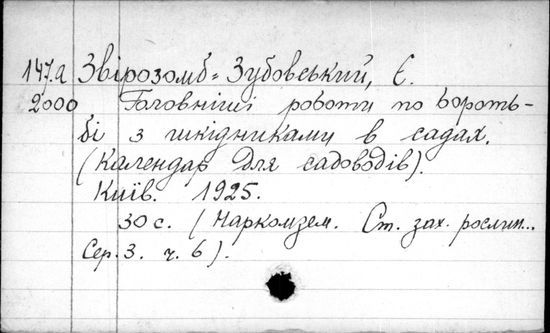 147.а Звірозомб-Зубовський, Є.
2000 Головніші роботи по бороть-
бі з шкідниками в садах.
(Календар для садоводів).
Київ. 1925.
30 с. (Наркомзем. Ст. зах. рослин..
Сер. 3. ч. 6).